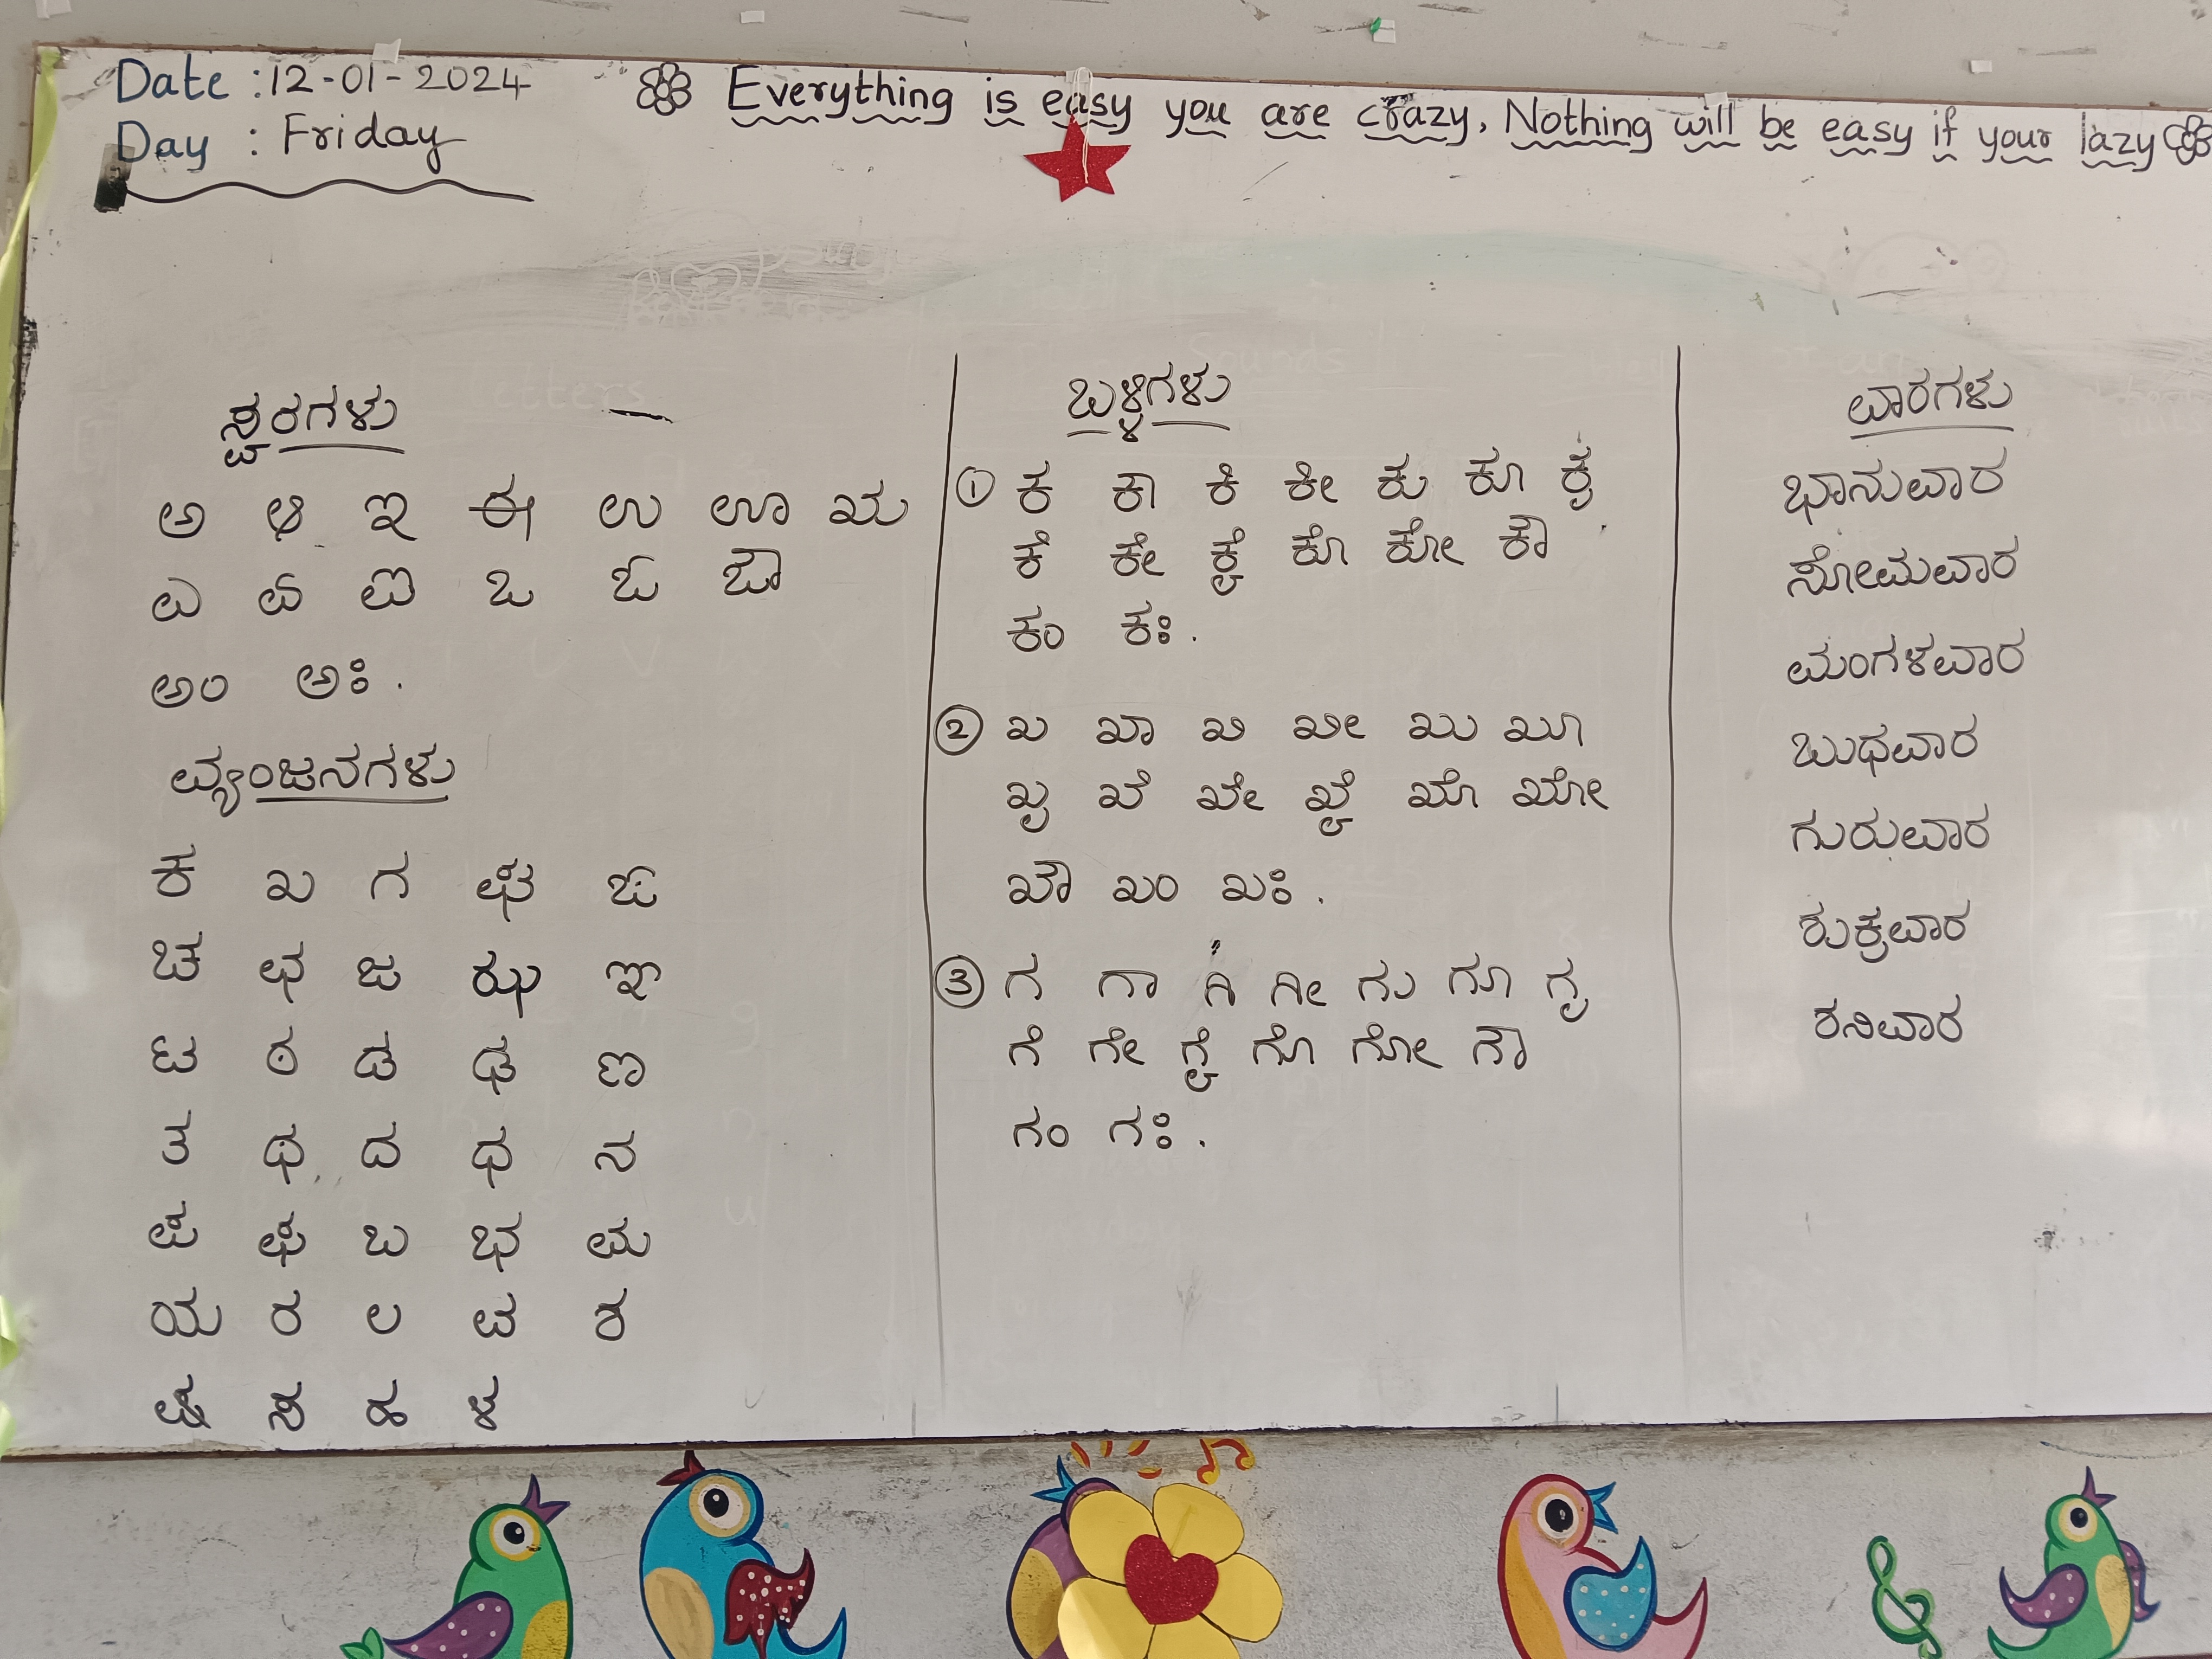 Date : 12-01-2024
Day : Friday
Everything is easy you are crazy, Nothing will be easy if your lazy
ಸ್ವರಗಳು
ಅ ಆ ಇ ಈ ಉ ಊ ಋ
ಎ ಏ ಐ ಒ ಓ ಔ
ಅಂ ಅಃ.
ವ್ಯಂಜನಗಳು
ಕ ಖ ಗ ಘ ಙ
ಚ ಛ ಜ ಝ ಞ
ಟ ಠ ಡ ಢ ಣ
ತ ಥ ದ ಧ ನ
ಪ ಫ ಬ ಭ ಮ
ಯ ರ ಲ ವ ಶ
ಷ ಸ ಹ ಳ
ಬಳ್ಳಿಗಳು
① ಕ ಕಾ ಕಿ ಕೀ ಕು ಕೂ ಕೃ
ಕೆ ಕೇ ಕೈ ಕೊ ಕೋ ಕೌ
ಕಂ ಕಃ.
② ಖ ಖಾ ಖಿ ಖೀ ಖು ಖೂ
ಖೃ ಖೆ ಖೇ ಖೈ ಖೊ ಖೋ
ಖೌ ಖಂ ಖಃ.
③ ಗ ಗಾ ಗಿ ಗೀ ಗು ಗೂ ಗೃ
ಗೆ ಗೇ ಗೈ ಗೊ ಗೋ ಗೌ
ಗಂ ಗಃ.
ವಾರಗಳು
ಭಾನುವಾರ
ಸೋಮವಾರ
ಮಂಗಳವಾರ
ಬುಧವಾರ
ಗುರುವಾರ
ಶುಕ್ರವಾರ
ಶನಿವಾರ